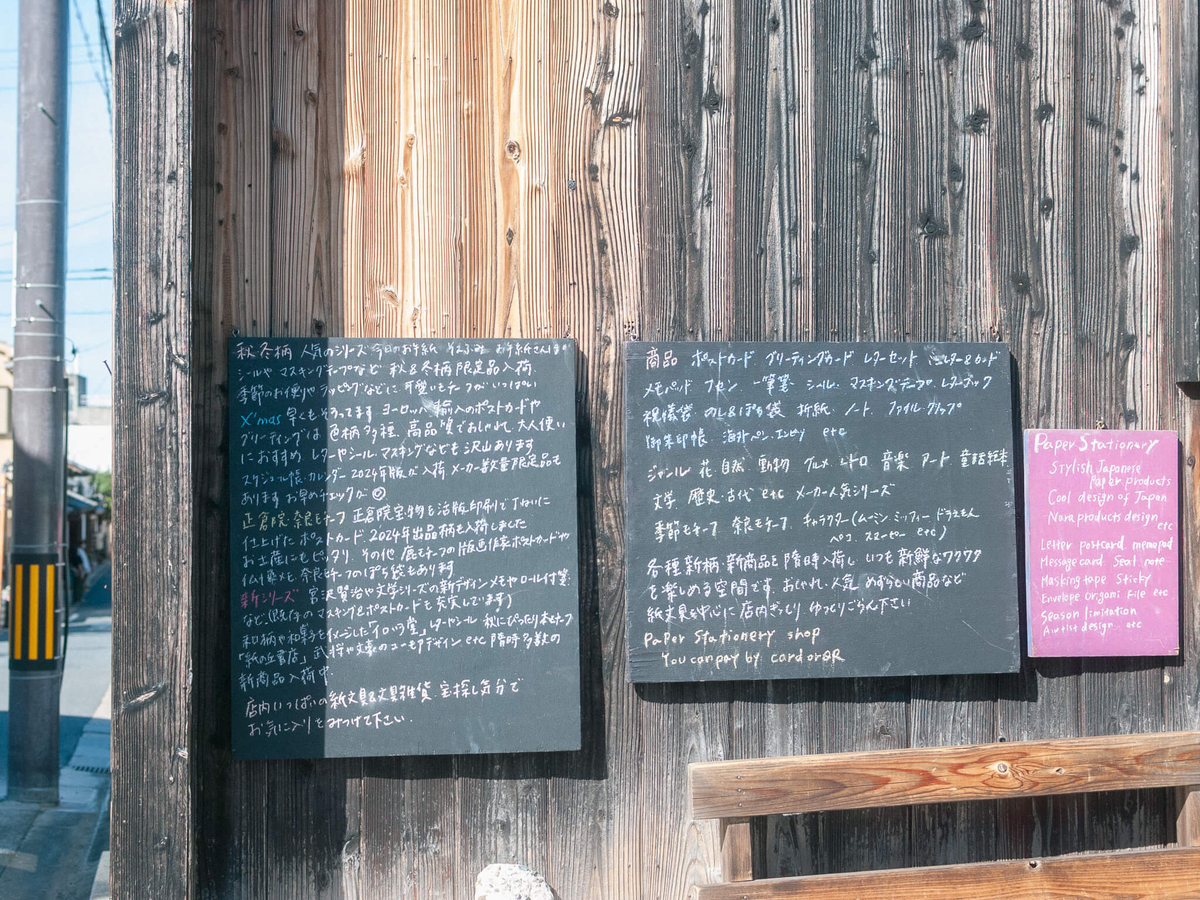 秋冬柄 人気のシリーズ 今日のお手紙 そえぶみ お手紙さんぽ
シールや マスキングテープなど 秋&冬柄 限定品入荷
季節のお便りや ラッピングなどに 可愛いモチーフがいっぱい
X'mas 早くもそろってます ヨーロッパ輸入のポストカードや
グリーティングは 色柄多種 高品質でおしゃれ 大人使い
におすすめ レターやシール マスキングなども沢山あります
スケジュール帳・カレンダー 2024年版が入荷 メーカー数量限定品も
あります お早めチェックが
正倉院・奈良モチーフ 正倉院宝物を活版印刷で丁ねいに
仕上げた ポストカード 2024年出品柄も入荷しました
お土産にもピッタリ、その他 鹿モチーフの版画作家ポストカードや
仏像メモ 奈良モチーフのぽち袋もあります
新シリーズ 宮沢賢治や文学シリーズの新デザインメモやロール付箋
など(既存のマスキングとポストカードも充実しています)
和柄や和菓子をイメージした「イロハラ堂」レターやシール 秋にぴったり本モチーフ
「紙の丘書店」武将や文豪のユニークデザイン etc 随時多数の
新商品入荷中
店内いっぱいの紙文具&文具雑貨 宝探し気分で
お気に入りをみつけて下さい
商品 ポストカード グリーティングカード レターセット ミニレター&カード
メモパッド フセン 一筆箋 シール マスキングテープ レターブック
祝儀袋 のし&ぽち袋 折紙 ノート ファイル クリップ
御朱印帳 海外ペン・エンピツ etc
ジャンル 花 自然 動物 グルメ レトロ 音楽 アート 童話絵本
文学 歴史・古代 etc メーカー人気シリーズ
季節モチーフ 奈良モチーフ キャラクター(ムーミン・ミッフィー ドラえもん
ペコ スヌーピー etc)
各種新柄・新商品を随時入荷し いつも新鮮なワクワク
を楽しめる空間です おしゃれ・人気 めずらしい商品など
紙文具を中心に店内ぎっしり ゆっくりごらん下さい
Paper Stationery shop
You can pay by card or QR
Paper Stationery
Stylish Japanese
Paper products
Cool design of Japan
Nara products design
etc
Letter postcard memopad
Message card Seal note
Masking tape Sticky
Envelope Origami File etc
Season limitation
Airtist design etc